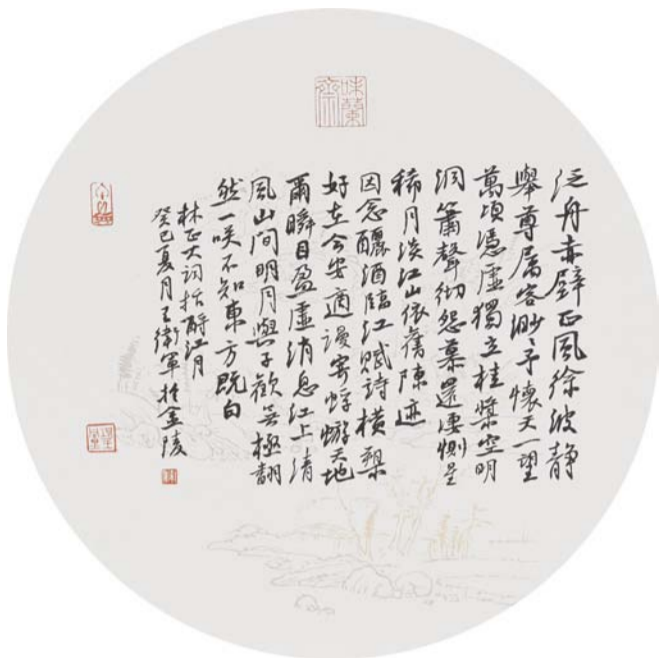 味蘭齋
泛舟赤壁正風徐波静
舉尊屬客渺予懷天一望
萬頃憑虚獨立桂槳空明
洞簫聲徹怨慕還凄惻星
稀月淡江山依舊陳迹
因念釃酒臨江賦詩横槊
好在今安適謾寄蜉蝣天地
爾瞬目盈虚消息江上清
風山間明月與子歡無極翻
然一咲不知東方既白
林正大詞括酹江月
癸巳夏月王衛軍於金陵